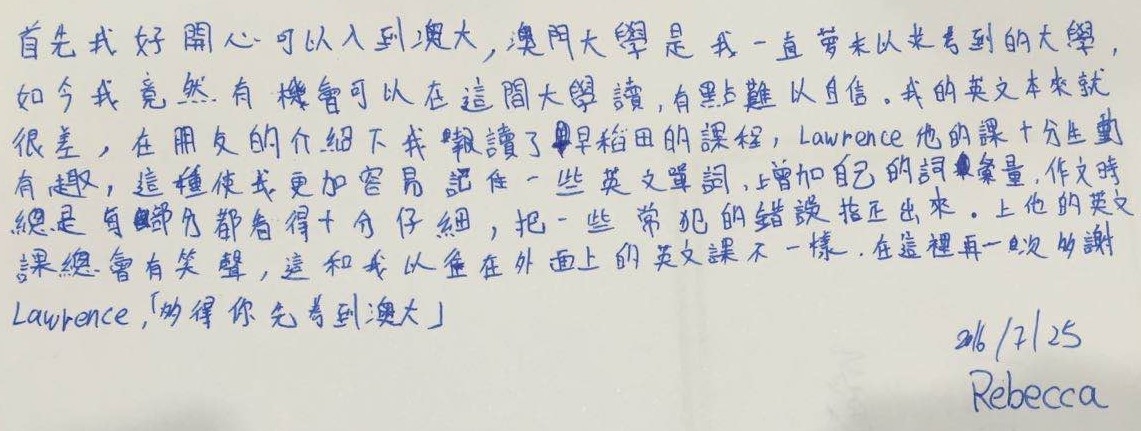 首先我好開心可以入到澳大,澳門大學是我一直夢未以求考到的大學,
如今我竟然有機會可以在這間大學讀,有點難以自信。我的英文本來就
很差,在朋友的介紹下我報讀了早稻田的課程,Lawrence他的課十分生動
有趣,這種使我更加容易記住一些英文單詞,增加自己的詞彙量,作文時
總是每部分都看得十分仔細,把一些常犯的錯誤指正出來。上他的英文
課總會有笑聲,這和我以往在外面上的英文課不一樣.在這裡再一次多謝
Lawrence,「多得你先考到澳大」
2016/7/25
Rebecca